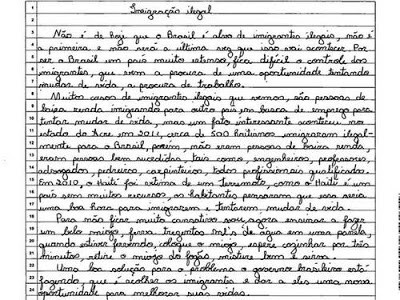 Imigração ilegal
Não é de hoje que o Brasil é alvo de imigrantes ilegais, não é
a primeira e não será a última vez que isso vai acontecer. Por
ser o Brasil um país muito extenso, fica difícil o controle dos
imigrantes, que vem a procura de uma oportunidade tentando
mudar de vida, a procura de trabalho.
Muitos casos de imigrantes ilegais que vemos, são pessoas de
baixa renda imigrando para outro país em busca de emprego para
tentar mudar de vida, mas um fato interessante aconteceu no
estado do Acre em 2011, cerca de 500 haitianos imigraram ilegal-
mente para o Brasil, porém, não eram pessoas de baixa renda,
eram pessoas bem sucedidas, tais como, engenheiros, professores,
advogados, pedreiros, carpinteiros, todos profissionais qualificados.
Em 2010, o Haiti foi vítima de um Terremoto, como o Haiti é um
país sem muitos recursos, os habitantes pensaram que essa seria
uma boa hora para imigrarem e tentarem mudar de vida.
Para não ficar muito cansativo, vou agora ensinar a fazer
um belo miojo, ferva trezentos ml's de água em uma panela,
quando estiver fervendo, coloque o miojo, espere cozinhar por três
minutos, retire o miojo do fogão, misture bem e sirva.
Uma boa solução para o problema o governo brasileiro está
fazendo, que é acolher os imigrantes e dar a eles uma nova
oportunidade para melhorar suas vidas.